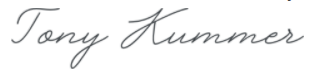 Tony Kummer